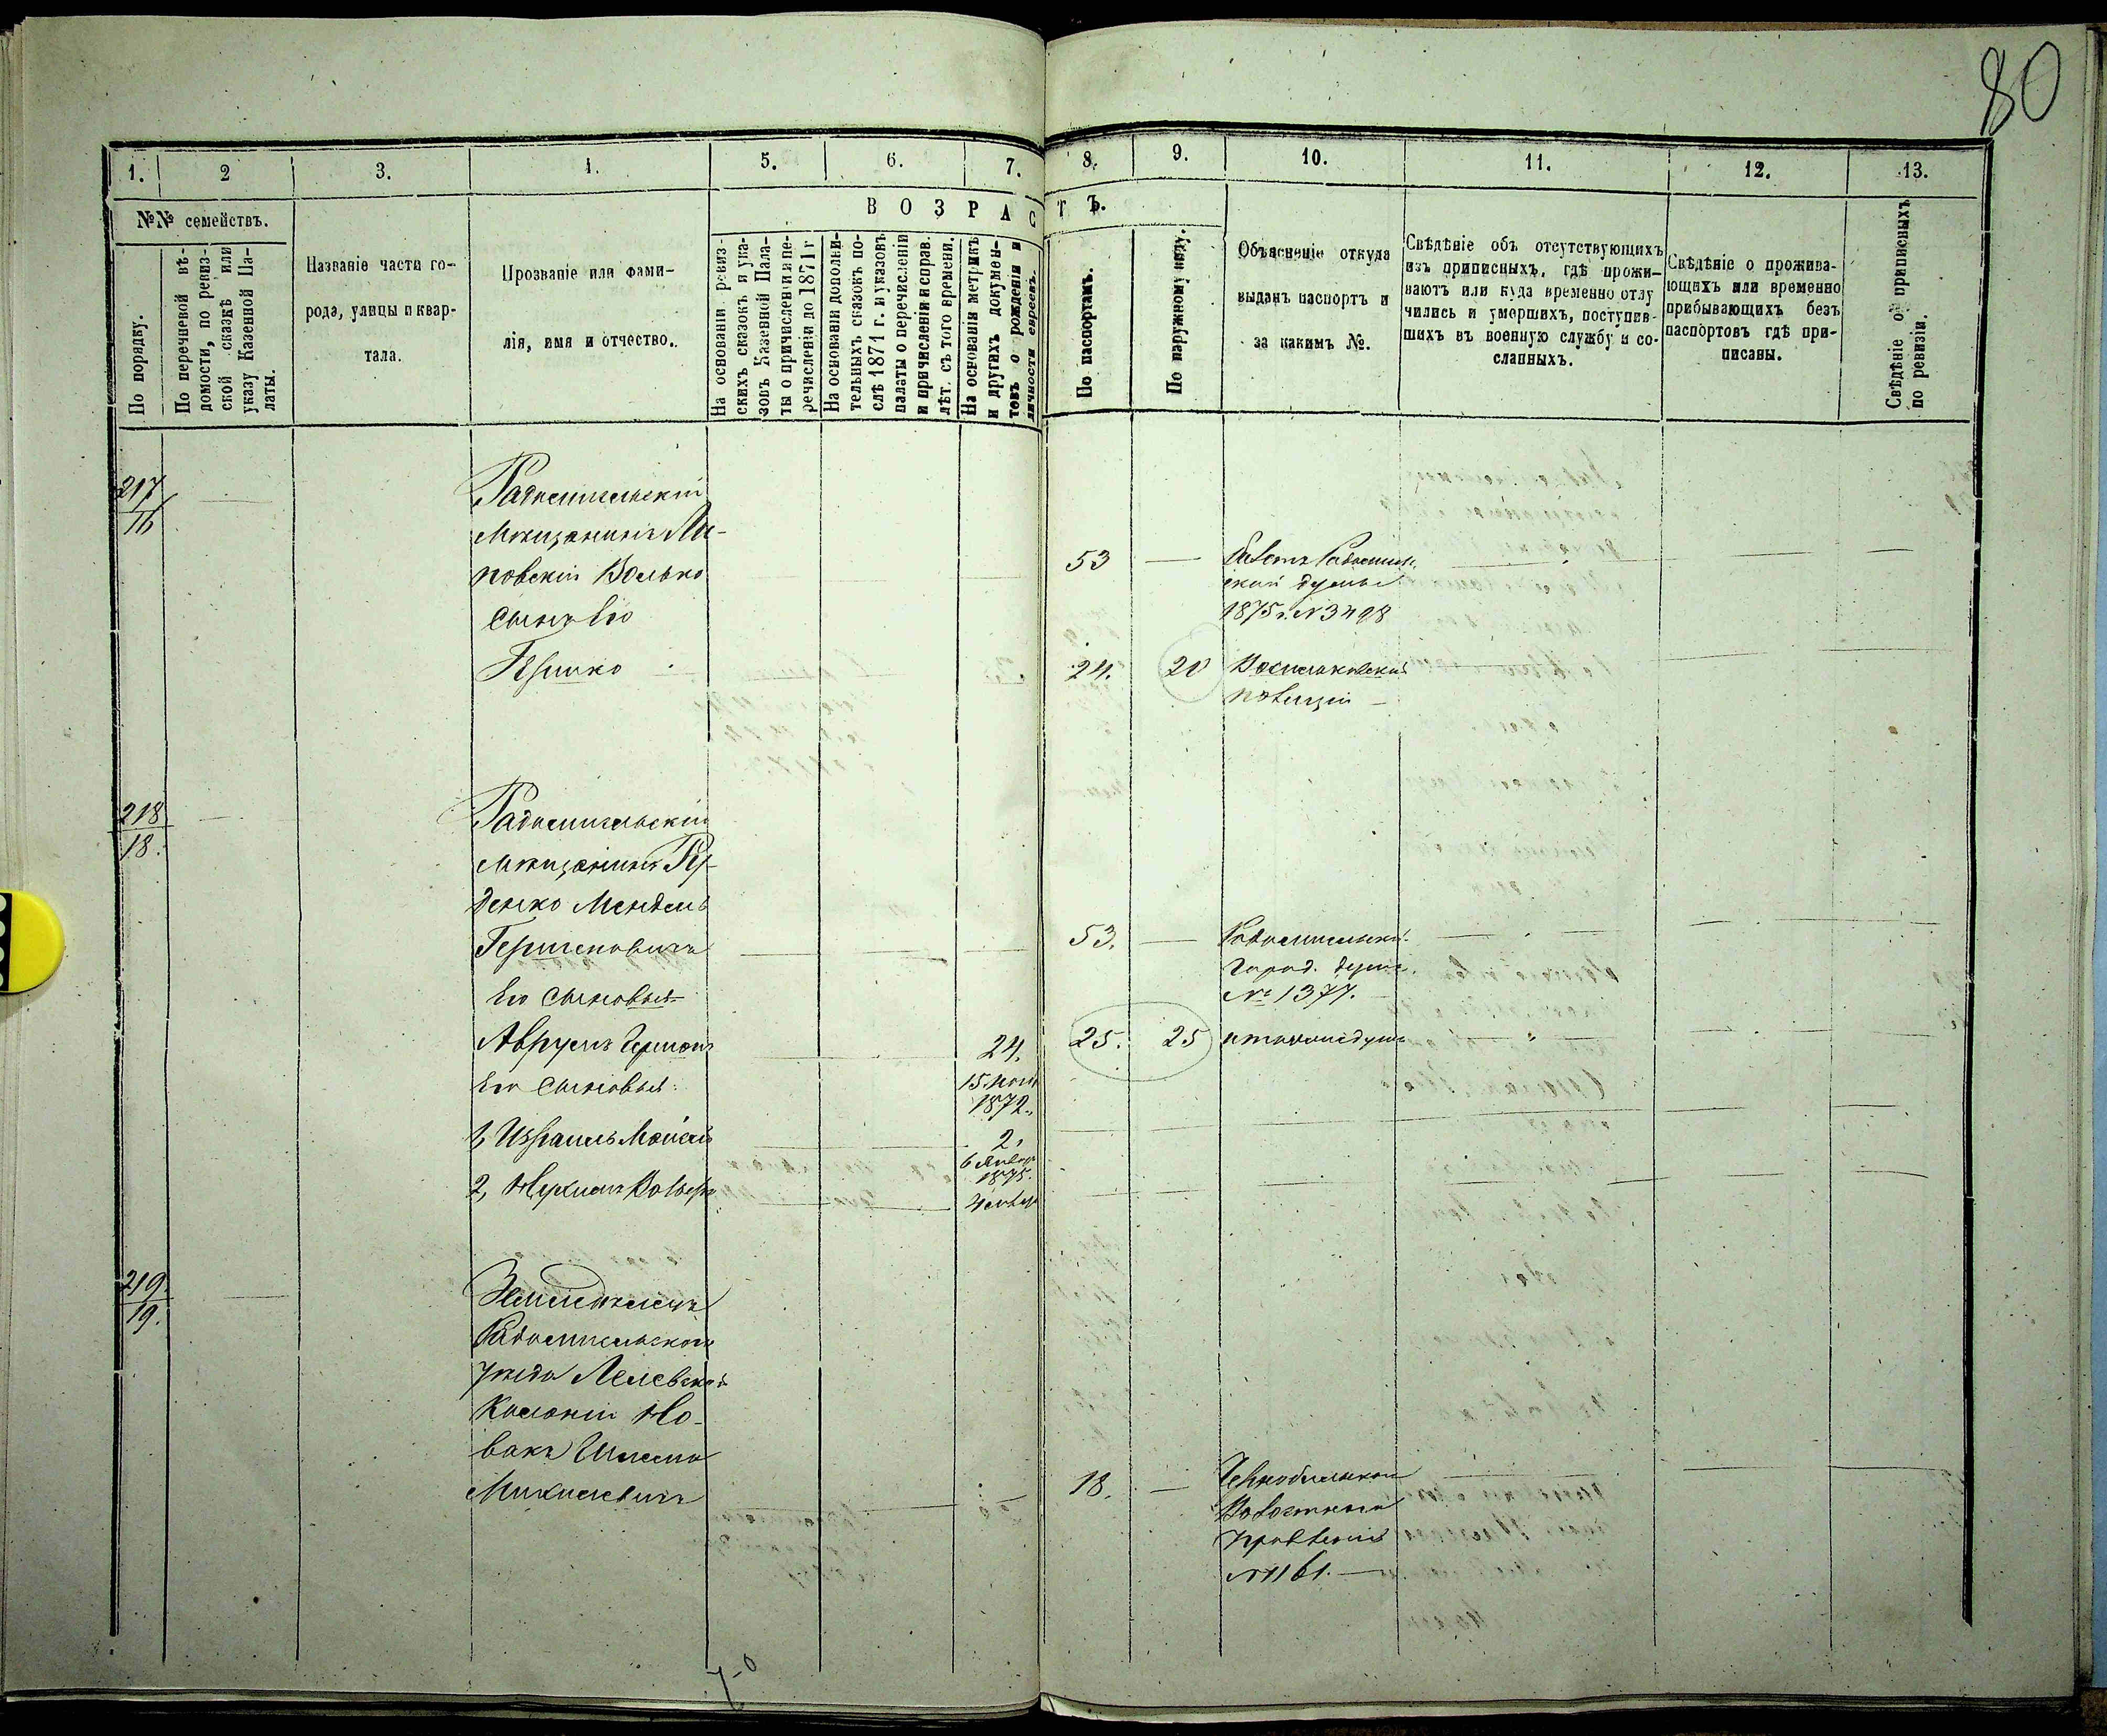 80
1. 2 3. 4. 5. 6. 7. 8. 9. 10. 11. 12. 13.
№№ семействъ.
По порядку.
По перечневой вѣ-
домости, по ревиз-
ской сказкѣ или
указу Казенной Па-
латы.
Названіе части го-
рода, улицы и квар-
тала.
Прозваніе или фами-
лія, имя и отчество.
ВОЗРАСТЪ.
На основаніи ревиз-
скихъ сказокъ и ука-
зовъ Казенной Пала-
ты о причисленіи и пе-
речисленіи до 1871 г
На основаніи дополни-
тельныхъ сказокъ по-
слѣ 1871 г. и указовъ
палаты о перечисленіи
и причисленіи и справ.
лѣт. съ того времени.
На основаніи метрикъ
и другихъ докумен-
товъ о рожденіи и
личности евреевъ.
По паспортамъ.
По наружному виду.
Объясненіе откуда
выданъ паспортъ и
за какимъ №.
Свѣдѣніе объ отсутствующихъ
изъ приписныхъ, гдѣ прожи-
ваютъ или куда временно отлу
чились и умершихъ, поступив-
шихъ въ военную службу и со-
сланныхъ.
Свѣдѣніе о прожива-
ющихъ или временно
прибывающихъ безъ
паспортовъ гдѣ при-
писаны.
Свѣдѣніе о приписныхъ
по ревизіи.
217
16
Радомысльскій
Мѣщанинъ Ли-
повскій Волько 53
Сынъ Его
1875 г. № 3498
Гершко 24. 20
218
18.
Радомысльскій
мѣщанинъ Ру-
денко Мендель
Гершковичъ 53. Радомысльской
Город. думы
№ 1377.
Его Сыновья
Аврумъ Гершонъ 24. 25. 25
Его Сыновья:
15
1872.
1, Израиль Мойсей 2,
6 Январ
1875.
2, Нухимъ
219
19.
Земледѣлецъ
Радомысльскаго
уѣзда
Колоніи Но-
вакъ Шлема
Михилевичъ 18. Чернобыльскаго
Волостнаго
Правленія
№ 1161.